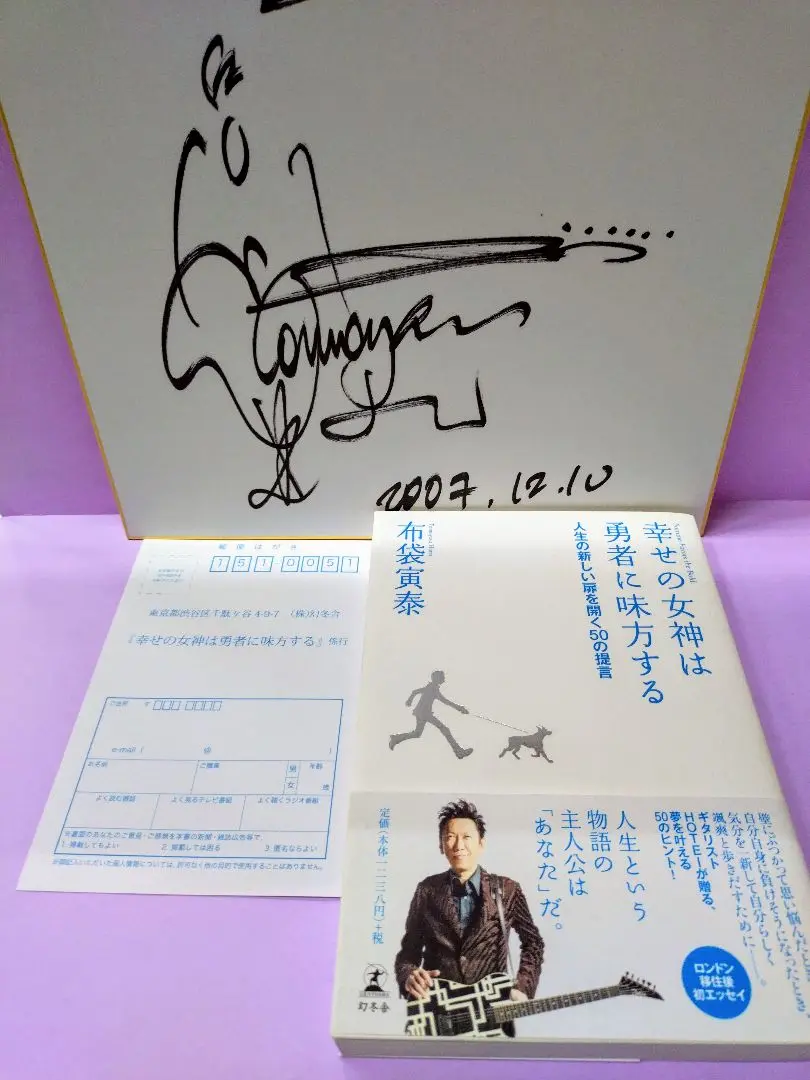 Tomoyasu
2007.12.10
郵便はがき
151-0051
東京都渋谷区千駄ヶ谷4-9-7 (株)幻冬舎
『幸せの女神は勇者に味方する』係行
ご住所 〒
e-mail ( @ )
お名前
ご職業
男
女
年齢
歳
よく読む雑誌
よく見るテレビ番組
よく聴くラジオ番組
※裏面のあなたのご意見・ご感想を本書の新聞・雑誌広告等で、
1. 掲載してもよい 2. 掲載しては困る 3. 匿名ならよい
※ご記入いただいた個人情報については、許可なく他の目的で使用することはありません。
幸せの女神は
勇者に味方する
人生の新しい扉を開く50の提言
布袋寅泰
壁にぶつかって思い悩んだとき、
自分自身に負けそうになったとき、
気分を一新して自分らしく
颯爽と歩きだすために――。
ギタリスト
HOTEIが贈る、
夢を叶える
50のヒント!
人生という
物語の
主人公は
「あなた」だ。
定価(本体一二三八円)+税
幻冬舎
ロンドン
移住後
初エッセイ